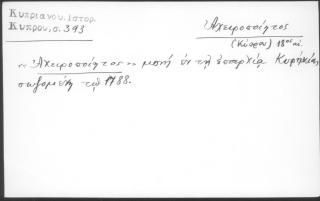 Κυπριανού. Ιστορ.
Κύπρου, σ. 393
Ἀχειροποίητος
(Κύπρου) 18ος αἰ.
"Ἀχειροποίητος" μονή ἐν τῇ ἐπαρχίᾳ Κυρηνείας,
σωζομένη τῷ 1788.